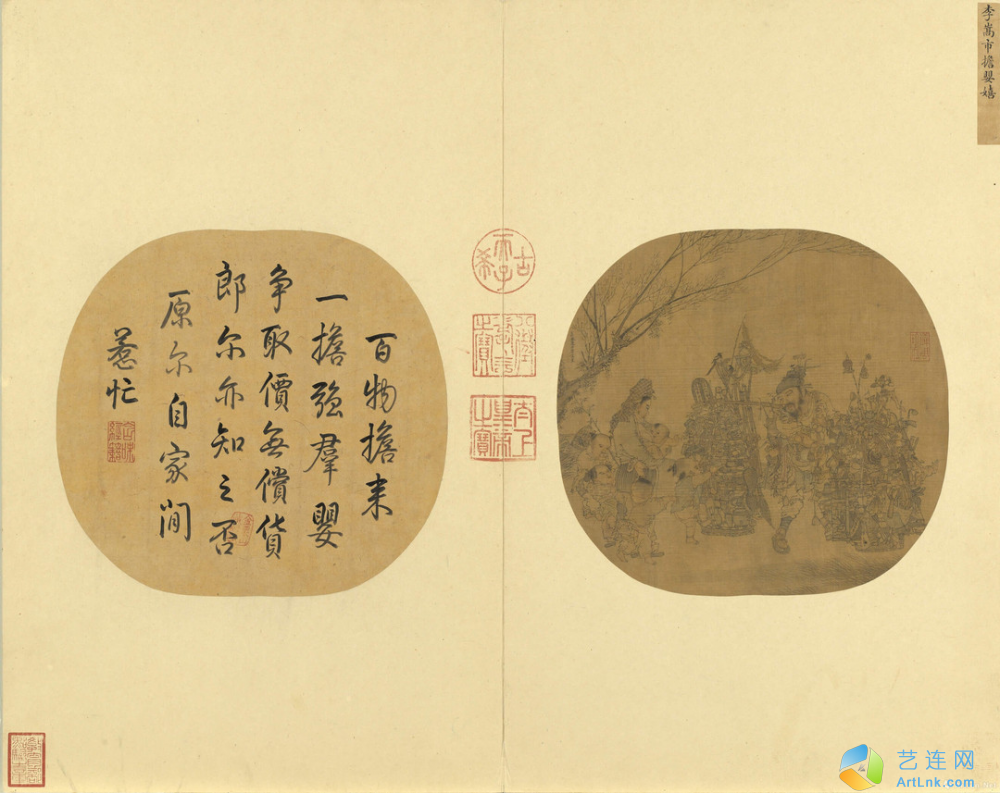 李嵩市擔嬰嬉
古稀天子
八徵耄念之寶
太上皇帝之寶
百物擔来
一擔強羣嬰
争取價無償貨
郎尔亦知之否
原尔自家閒
惹忙
艺连网
ArtLnk.com